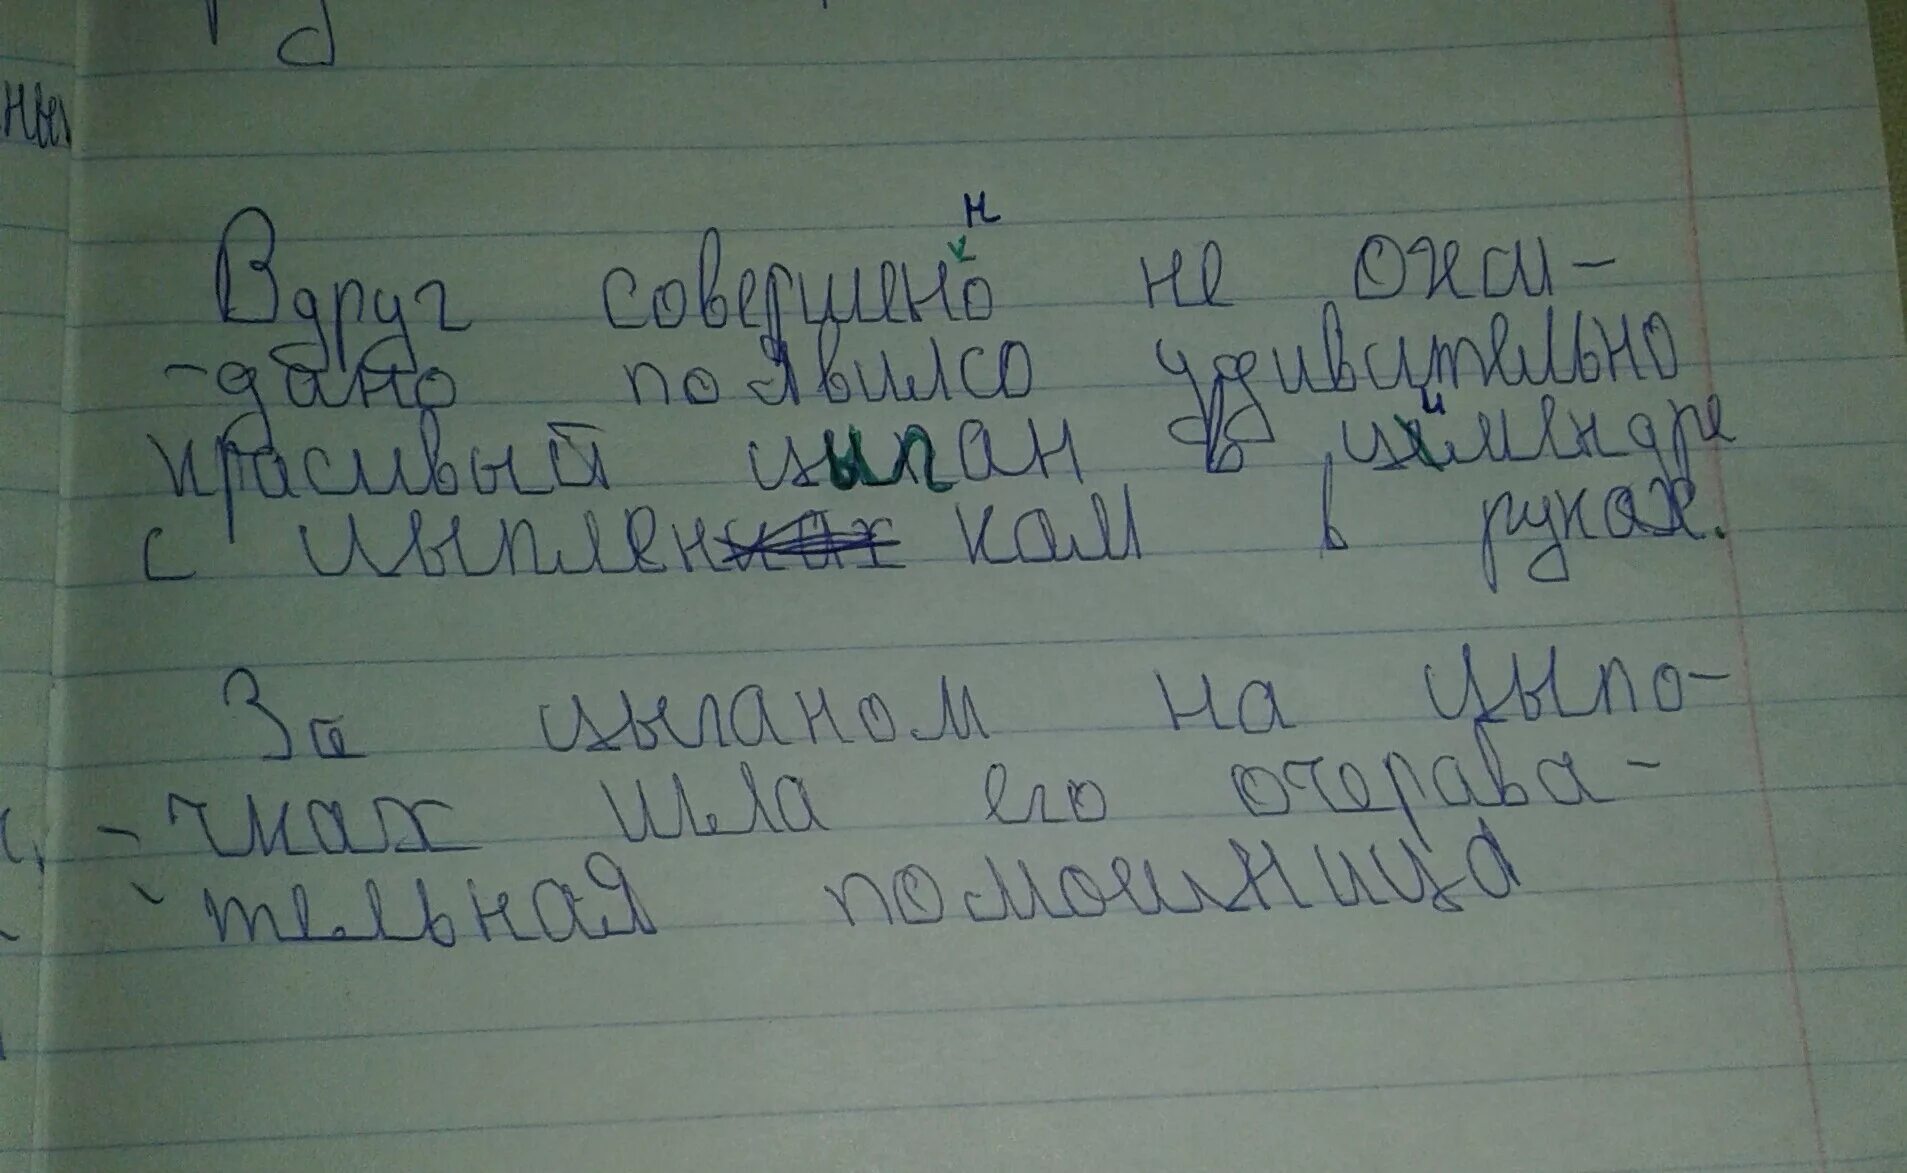 Вдруг совершенно не ожи-
-дано появилсо удивительно
красивый цыпан в цилендре
с цыплен ком в руках.
За цыганом на цыпо-
-чках шла его очерава-
-тельная помошница